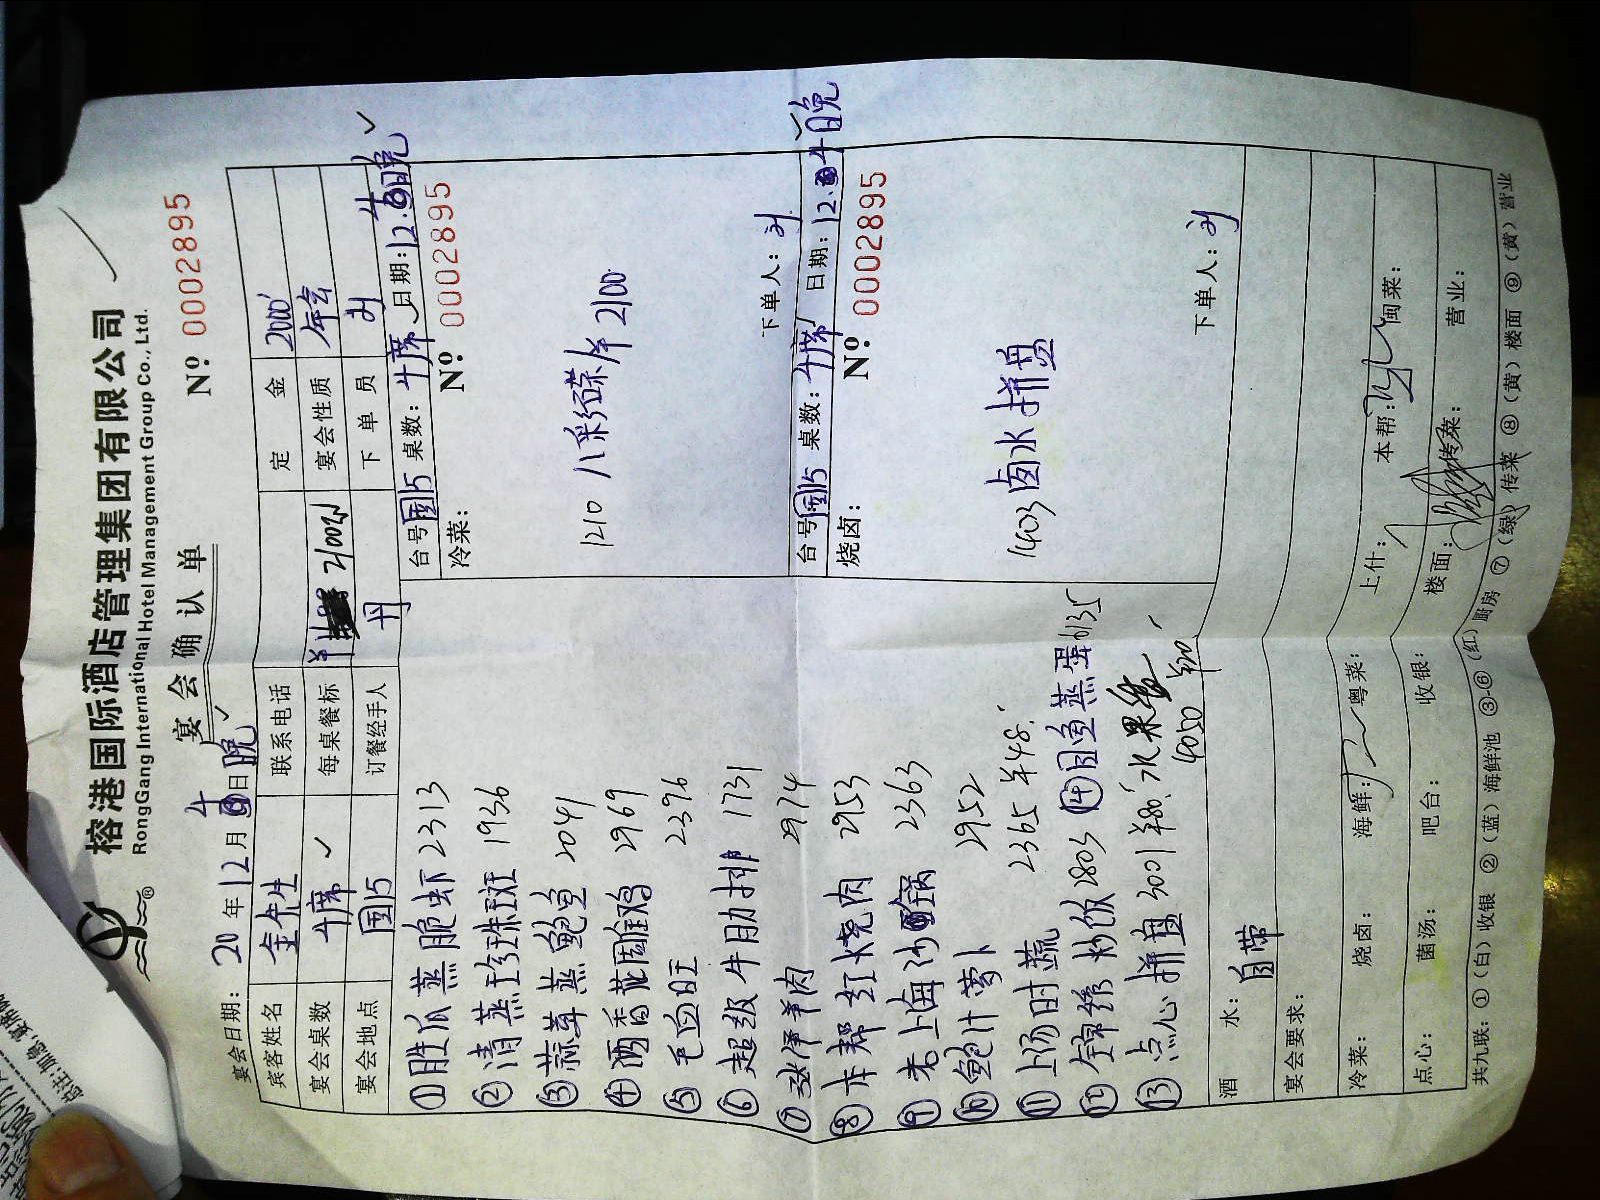 榕港国际酒店管理集团有限公司
RongGang International Hotel Management Group Co., Ltd.
宴会确认单
Nº 0002895
宴会日期: 20 年 12 月 4 日 晚
宾客姓名 金先生 联系电话 定金 2000
宴会桌数 4席 每桌餐标 宴会性质 年会
宴会地点 国15 订餐经手人 丹 下单员
台号 国15 桌数: 4席 日期: 12. 4日晚
冷菜: Nº 0002895
1210 八彩碟 2100
下单人:
台号 国15 桌数: 4席 日期: 12. 4日晚
烧卤: Nº 0002895
1403 卤水拼盘
下单人:
① 胜瓜蒸脆虾 2313
② 清蒸珍珠斑 1936
③ 蒜茸蒸鲍鱼 2041
④ 酒香花雕鸡 2969
⑤ 毛血旺 2396
⑥ 超级牛肋排 1731
⑦ 羊肉 2974
⑧ 本帮红烧肉 2953
⑨ 老上海砂锅 2363
⑩ 鲍汁萝卜 2952
⑪ 上汤时蔬 2365 ¥48
⑫ 锦绣炒饭 2803 ⑭ 鱼蒸蛋 6135
⑬ 点心拼盘 3001 ¥80 水果 4050
酒水: 自带
宴会要求:
冷菜: 烧卤: 海鲜: 粤菜: 上什: 本帮: 闽菜:
点心: 菌汤: 吧台: 收银: 楼面: 传菜: 营业:
共九联: ①(白)收银 ②(蓝)海鲜池 ③-⑥(红)厨房 ⑦(绿)传菜 ⑧(黄)楼面 ⑨(黄)营业